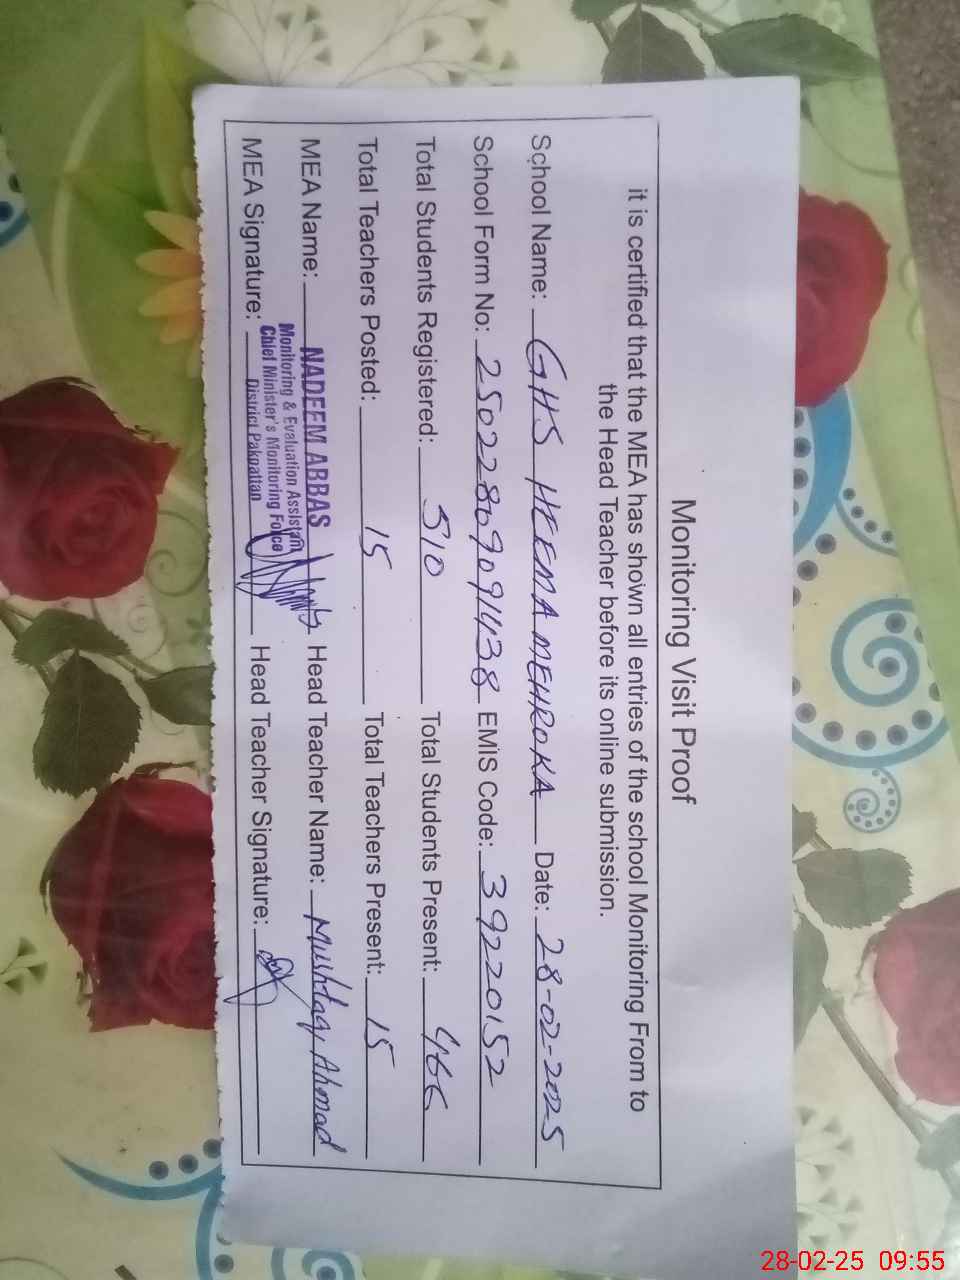 Monitoring Visit Proof
it is certified that the MEA has shown all entries of the school Monitoring From to
the Head Teacher before its online submission.
School Name: GHS HEEMA MEHROKA Date: 28-02-2025
School Form No: 25022809091438 EMIS Code: 39220152
Total Students Registered: 510 Total Students Present: 466
Total Teachers Posted: 15 Total Teachers Present: 15
MEA Name: NADEEM ABBAS Head Teacher Name: Mushtaq Ahmad
Monitoring & Evaluation Assistant
Chief Minister's Monitoring Force
District Pakpattan
MEA Signature: Head Teacher Signature:
28-02-25 09:55